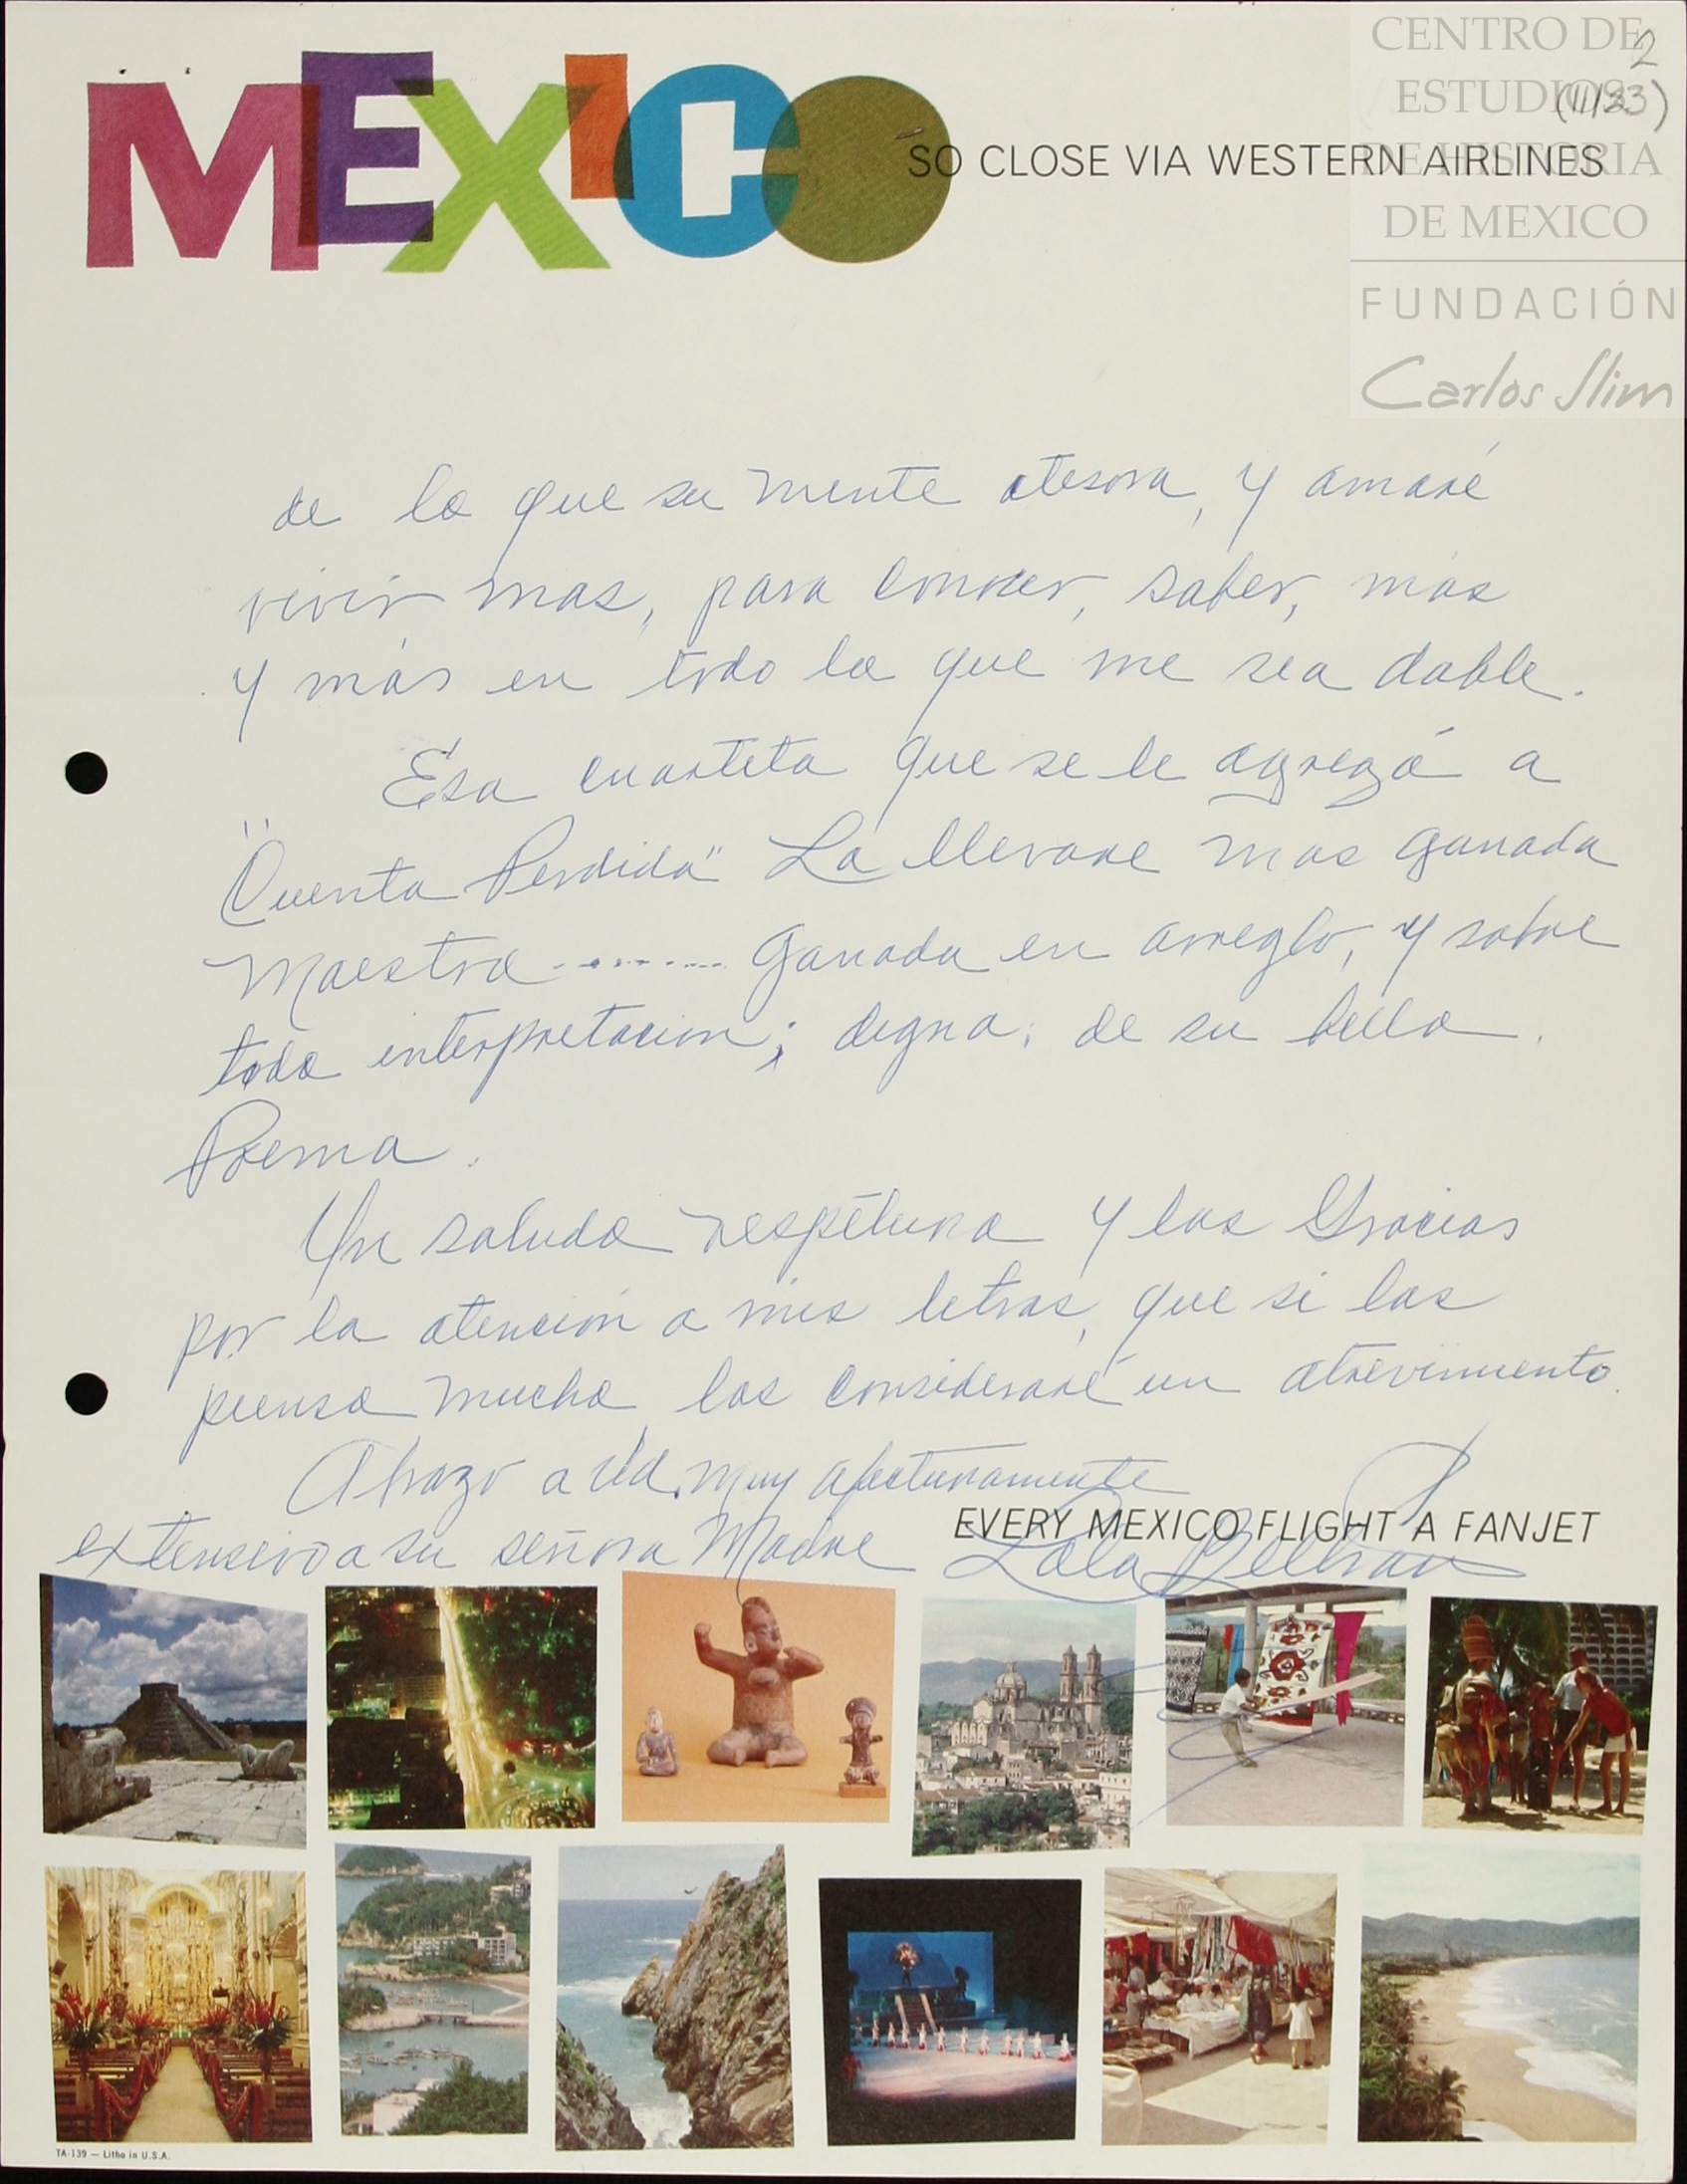 MEXICO
SO CLOSE VIA WESTERN AIRLINES
CENTRO DE
ESTUDIOS
DE HISTORIA
DE MEXICO
FUNDACIÓN
Carlos Slim
2
de lo que su mente atesora, y amaré
vivir mas, para conocer, saber, más
y más en todo lo que me sea dable.
Esa cuarteta que se le agregó a
"Cuenta Perdida" La llevare mas ganada
Maestro ........ Ganada en arreglo, y sobre
todo interpretacion; digna, de su bello.
Poema.
Un saludo respetuoso y las Gracias
por la atención a mis letras, que si las
pienso mucho las consideraré un atrevimiento.
Abrazo a Ud. muy afectuosamente
extensivo a su señora Madre Lola Beltran
EVERY MEXICO FLIGHT A FANJET
TA-139 — Litho in U.S.A.